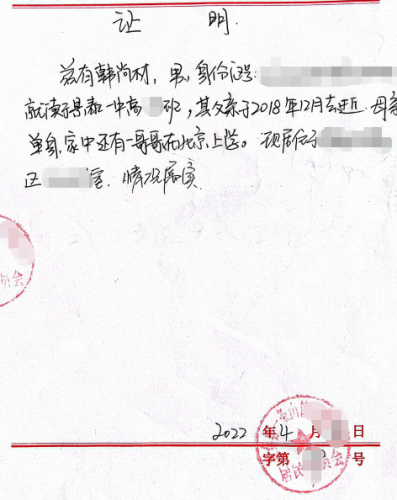 证 明.
兹有韩尚材，男，身份证号：
就读于景泰一中高 班，其父亲于2018年12月去逝 母亲
单身，家中还有一哥哥在北京上学。现居住于
区 室. 情况属实
员会
2022 年 4 月 日
字第 号
居民 员会